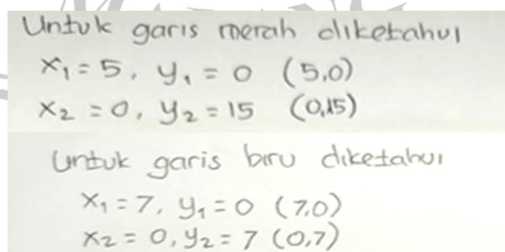 Untuk garis merah diketahui
x₁ = 5, y₁ = 0 (5,0)
x₂ = 0, y₂ = 15 (0,15)
Untuk garis biru diketahui
x₁ = 7, y₁ = 0 (7,0)
x₂ = 0, y₂ = 7 (0,7)